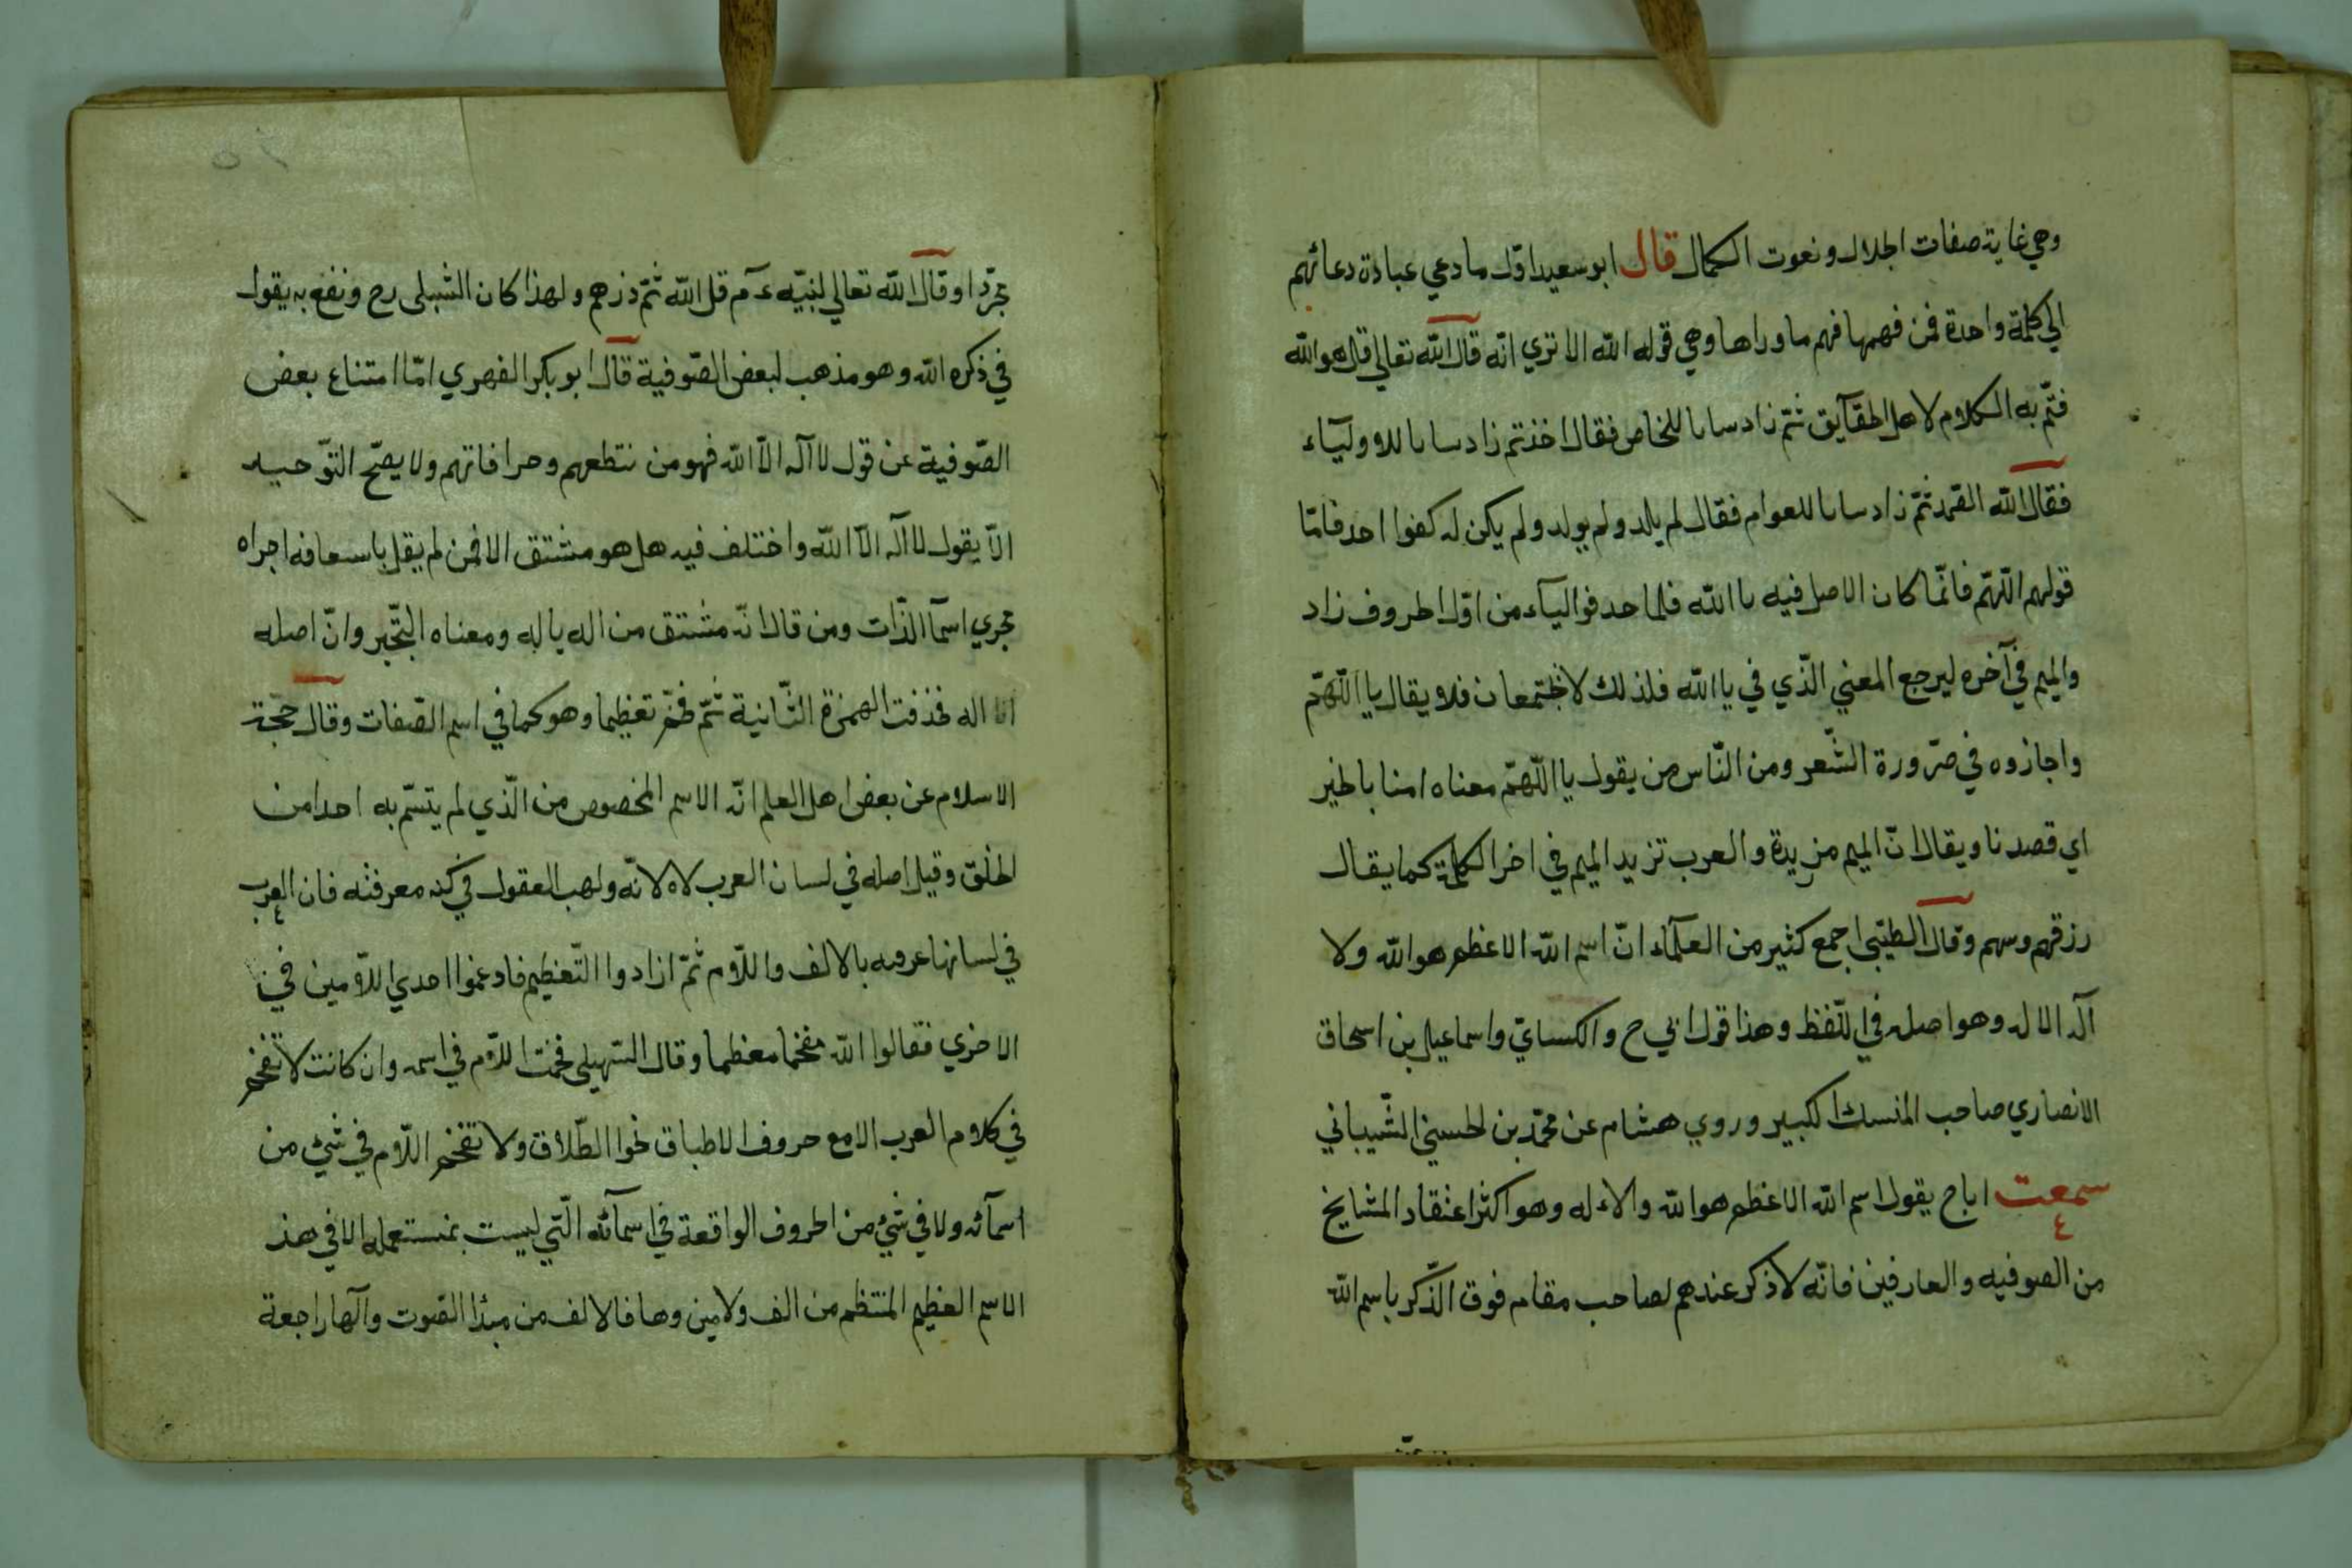 وهي غاية صفات الجلال ونعوت الكمال قال ابو سعيد اوّل ما دعي عبادة دعائهم
الي كلمة واحدة فمن فهمها فهم ما وراها وهي قوله الله الا تري انّه قال الله تعالي قل هو الله
فتمّ به الكلام لاهل الحقآيق ثمّ زاد سانا للخاص فقال اخذتم زاد سانا للاوليآء
فقال الله الصّمد ثمّ زاد سانا للعوام فقال لم يلد ولم يولد ولم يكن له كفوا احد فامّا
قولهم اللّهمّ فانّما كان الاصل فيه يا الله فلما حدفوا اليآء من اوّل الحروف زاد
والميم في آخره ليرجع المعني الّذي في يا الله فلذلك لا يجتمعان فلا يقال يا اللّهمّ
واجازوه في ضرورة الشّعر ومن النّاس من يقول يا اللّهمّ معناه امنا بالخير
اي قصدنا ويقال انّ الميم مزيدة والعرب تزيد الميم في اخر الكلمة كما يقال
رزقهم وسهم وقال الطيّبي اجمع كثير من العلمآء انّ اسم الله الاعظم هو الله ولا
آله الا له وهو اصله في اللّفظ وهذا قول ابي ح والكسايّ واسماعيل بن اسحاق
الانصاري صاحب المنسك الكبير وروي هشام عن محمّد بن الحسين الشّيباني
سمعت اباح يقول اسم الله الاعظم هو الله والاء له وهو اكثر اعتقاد المشايخ
من الصوفيه والعارفين فانّه لا ذكر عندهم لصاحب مقام فوق الذّكر باسم الله
مجرّدا وقال الله تعالي لنبيّه ءم قل الله ثمّ ذرهم ولهذا كان الشّبلي رح ونفع به يقول
في ذكره الله وهو مذهب لبعض الصّوفية قال ابو بكر الفهري امّا امتناع بعض
الصّوفية عن قول لا آله الّا الله فهو من تنطعهم وخرافاتهم ولا يصحّ التّوحيد
الّا يقول لا آله الّا الله واختلف فيه هل هو مشتق الا فمن لم يقل باسعافه اجراه
مجري اسمآ الذّات ومن قال انّه مشتق من اله ياله ومعناه التّحيّر وانّ اصله
انا اله فحذفت الهمزة الثّانية ثمّ فخّم تعظيما وهو كما في اسم الصّفات وقال حجّة
الاسلام عن بعض اهل العلم انّه الاسم المخصوص من الّذي لم يتسّم به احد من
الخلق وقيل اصله في لسان العرب لاه لانّه ولهب العقول في كنه معرفته فان العرب
في لسانها عرفه بالالف واللّام ثمّ ازادوا التّعظيم فادغموا احدي اللّامين في
الاخري فقالوا الله مفخما معظما وقال السّهيلي فخمت اللّام في اسمه وان كانت لا تفخم
في كلام العرب الا مع حروف الاطباق نحوا الطّلاق ولا تفخم اللّام في شيء من
اسمآئه ولا في شيء من الحروف الواقعة في اسمآئه الّتي ليست بمستعمله الا في هذ
الاسم العظيم المنتظم من الف ولامين وها فالالف من مبدٔا الصّوت والها راجعة